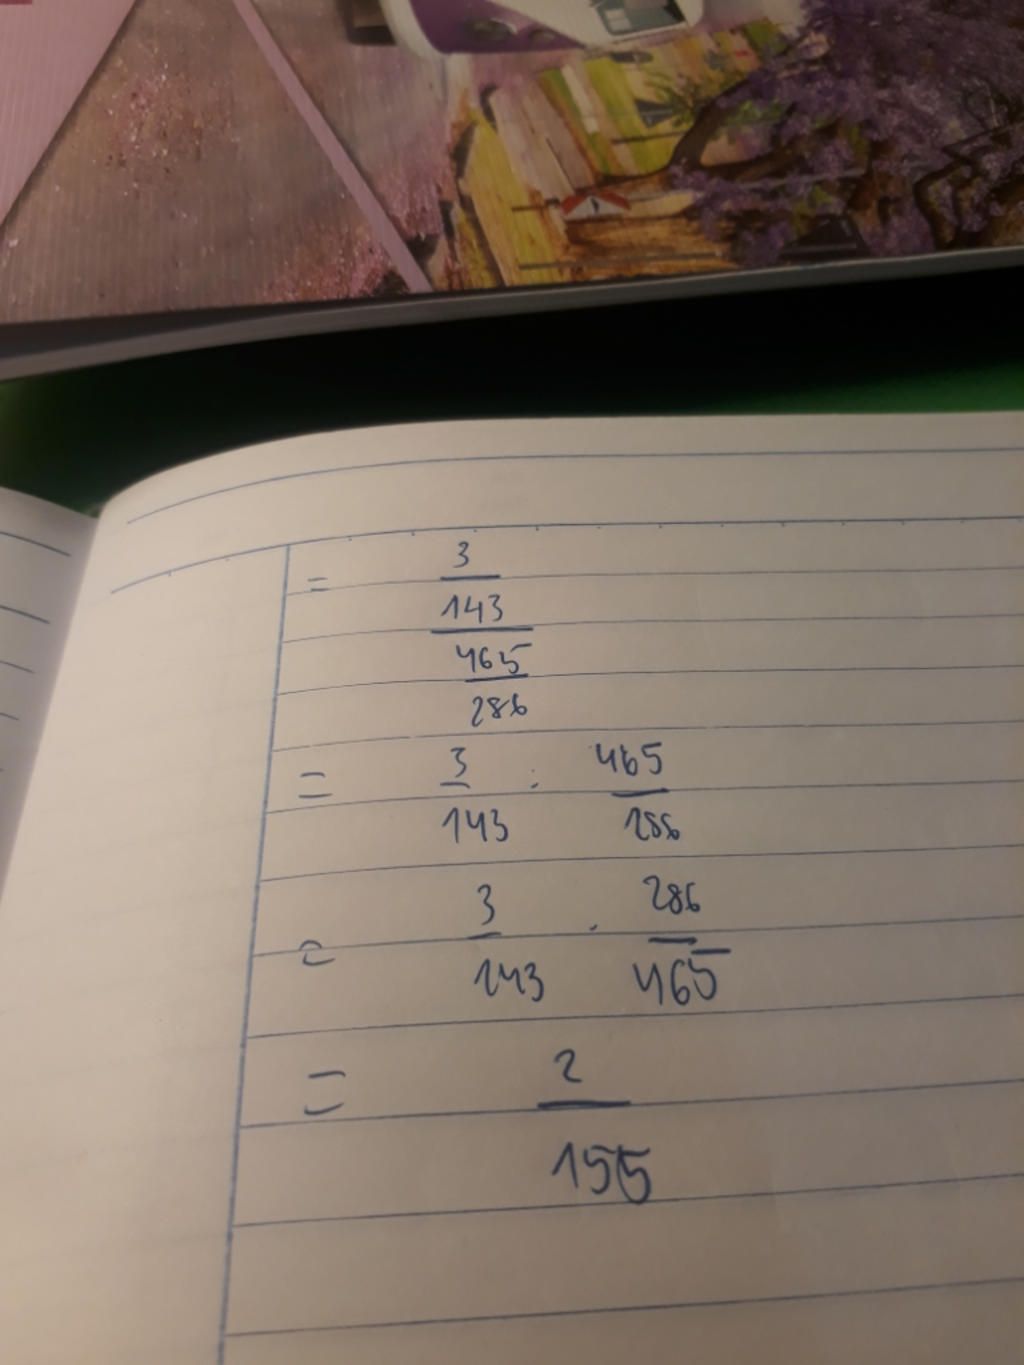 = 3
143
465
286
= 3/143 : 465/286
= 3/143 . 286/465
= 2/155